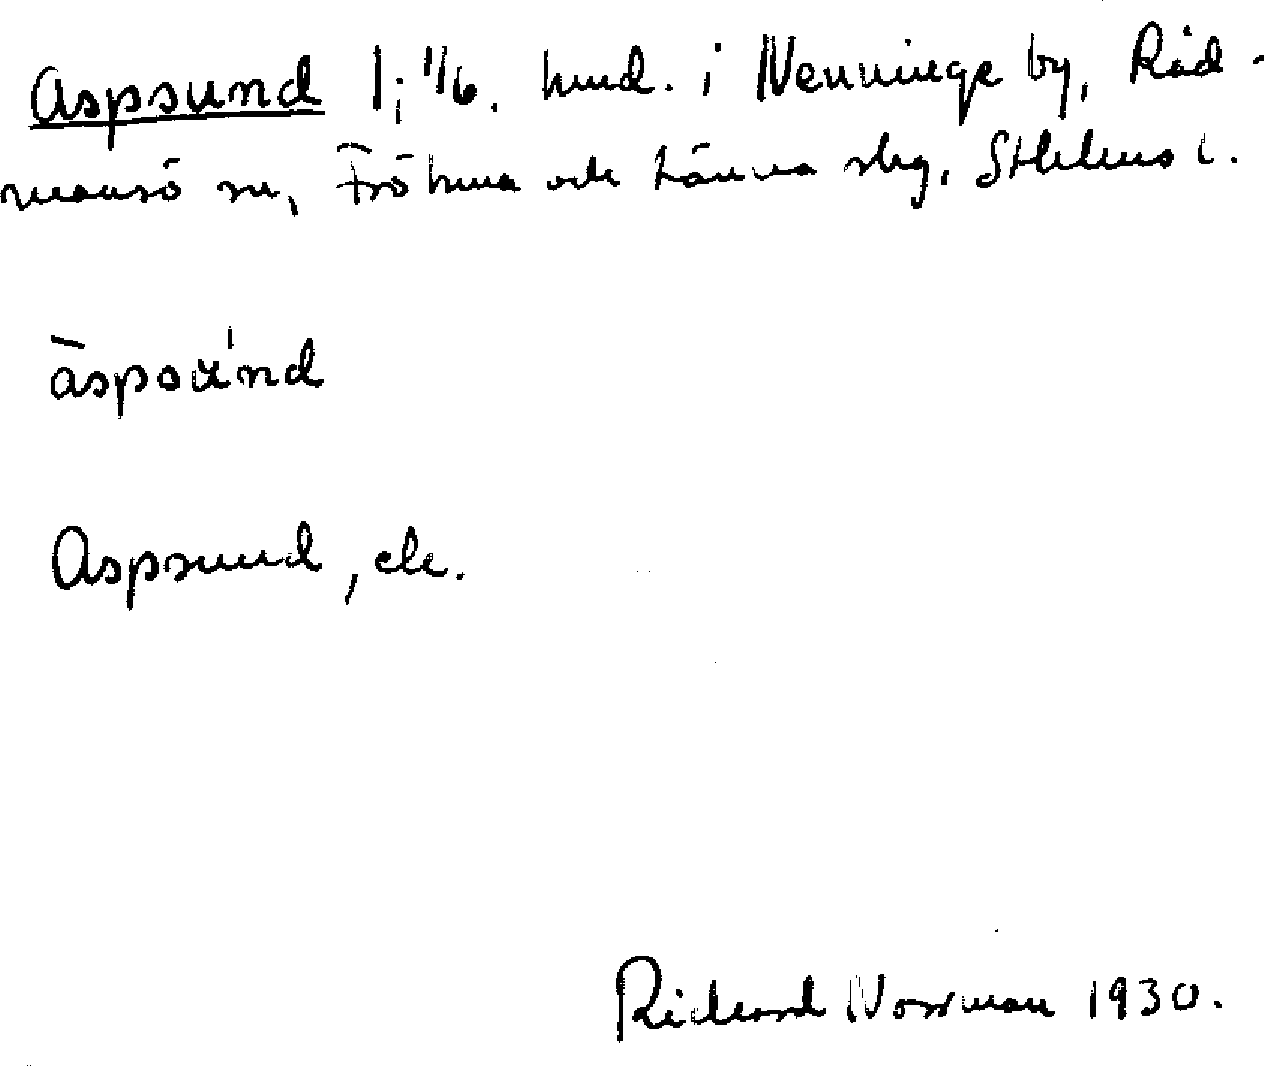 Aspsund 1; 1/6. hmd. i Nenninge by, Råd-
mansö sn, Frötuna och Länna slg, Sthlms l.
àspsu̍nd
Aspsund, ek.
Richard Norrman 1930.